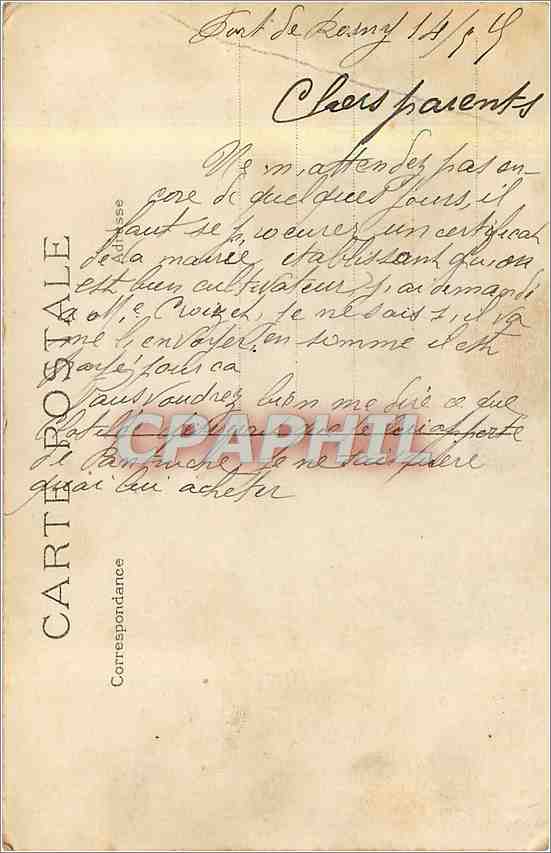 Fort de Rosny 14/
Chers parents
Ne m'attendez pas en-
core de quelques jours, il
faut se procurer un certificat
de la mairie établissant qu'on
est bien cultivateur j'ai demandé
a Mr Croizet, je ne sais s'il va
me l'envoyer, en somme il est
pour ca
Vous voudrez bien me dire ce que
de je ne sais guere
quoi lui acheter
CARTE POSTALE
Correspondance
Adresse
CPAPHIL